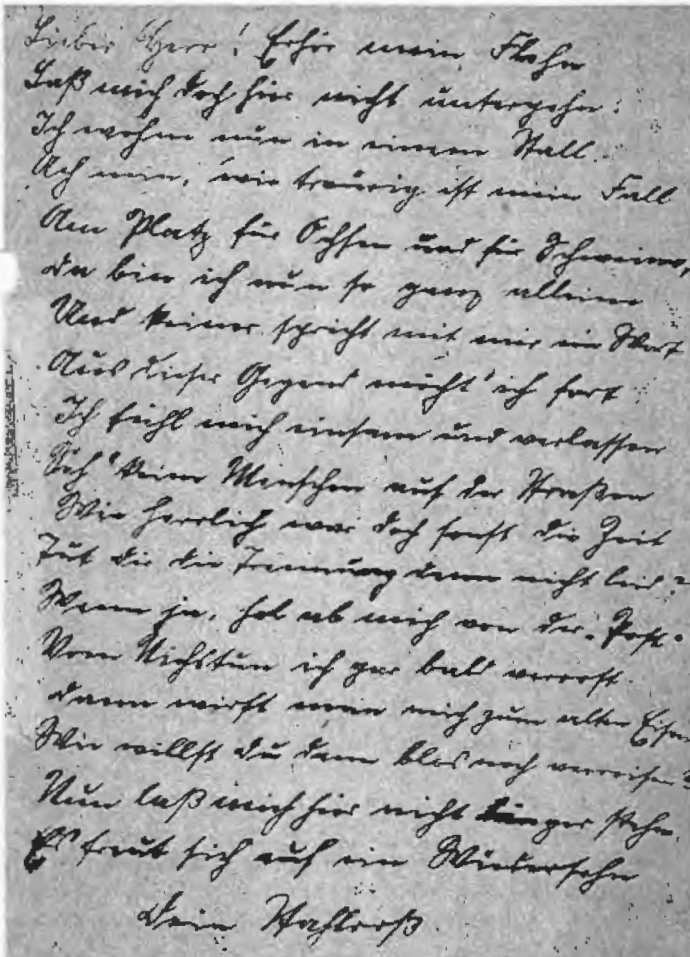 Lieber Herr! Erhör mein Flehn
Laß mich doch hier nicht untergehn!
Ich wohne nun in einem Stall.
Ach nein, wie traurig ist mein Fall
Am Platz für Ochsen und für Schweine,
da bin ich nun so ganz alleine
Und keiner spricht mit mir ein Wort
Aus dieser Gegend möcht' ich fort.
Ich fühl mich einsam und verlassen
Seh' keine Menschen auf der Straßen
Wie herrlich war doch sonst die Zeit
Tut dir die Trennung denn nicht leid?
Wenn ja, hol ab mich von der "Post"
Vom Nichstun ich gar bald verrost
dann wirft man mich zum alten Eisen
Wie willst du dann blos noch verreisen?
Nun laß mich hier nicht länger stehn.
Es freut sich auf ein Wiedersehn
Dein Stahlroß.